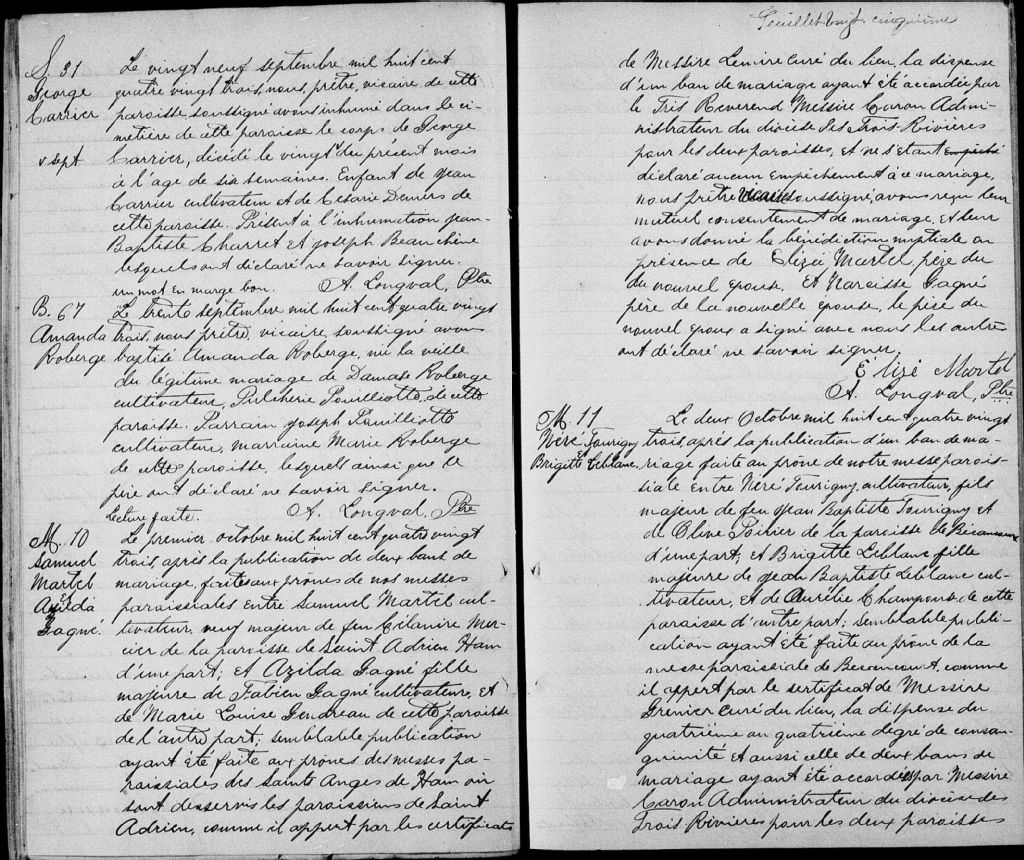 S. 31
George
Carrier
v sept
Le vingt neuf septembre mil huit cent
quatre vingt trois, nous, prêtre, vicaire de cette
paroisse, soussigné avons inhumé dans le ci-
metière de cette paroisse le corps de George
Carrier, décidé le vingt du présent mois
à l'age de six semaines. Enfant de Jean
Carrier cultivateur et de Césarie Demers de
cette paroisse. Présent à l'inhumation Jean-
Baptiste Charret et Joseph Beauchêne
lesquels ont déclaré ne savoir signer.
un mot en marge bon. A. Longval, Ptre
B. 67
Amanda
Roberge
Le trente septembre mil huit cent quatre vingt
trois, nous, prêtre, vicaire, soussigné avons
baptisé Amanda Roberge, née la veille
du légitime mariage de Damase Roberge
cultivateur, Pulchérie Pouilliotte, de cette
paroisse. Parrain Joseph Pouilliotte
cultivateur, marraine Marie Roberge
de cette paroisse, lesquels ainsi que le
père ont déclaré ne savoir signer.
Lecture faite. A. Longval, Ptre
M. 10
Samuel
Martel
et
Azilda
Gagné.
Le premier octobre mil huit cent quatre vingt
trois, après la publication de deux bans de
mariage, faite aux prônes de nos messes
paroissiales entre Samuel Martel cul-
tivateur, veuf majeur de feu Hilanire Mer-
cier de la paroisse de Saint Adrien Ham
d'une part; et Azilda Gagné fille
majeure de Fabien Gagné cultivateur, et
de Marie Louise Gendreau de cette paroisse
de l'autre part; semblable publication
ayant été faite aux prônes des messes pa-
roissiales des Saints Anges de Ham où
sont desservis les paroissiens de Saint
Adrien, comme il appert par les certificats
Feuillet vingt cinquième
de Messire Lemire Curé du lieu, la dispense
d'un ban de mariage ayant été accordée par
le Très Révérend Messire Caron Admi-
nistrateur du diocèse des Trois Rivières
pour les deux paroisses, et ne s'étant empêché
déclaré aucun empêchement à ce mariage,
nous prêtre vicaire soussigné, avons reçu leur
mutuel consentement de mariage, et leur
avons donné la bénédiction nuptiale en
présence de Elizé Martel, père du
du nouvel epouse, et Narcisse Gagné
père de la nouvelle epouse, le père du
nouvel époux a signé avec nous les autres
ont déclaré ne savoir signer.
Elizé Martel
A. Longval, Ptre
M. 11
Néré Tourigny
et
Brigitte Leblanc.
Le deux Octobre mil huit cent quatre vingt
trois, après la publication d'un ban de ma-
riage faite au prône de notre messe parois-
siale entre Néré Tourigny, cultivateur, fils
majeur de feu Jean Baptiste Tourigny et
de Olive Poirier de la paroisse de Bécancour
d'une part; et Brigitte Leblanc fille
majeure de Jean Baptiste Leblanc cul-
tivateur, et de Aurélie Champoux de cette
paroisse d'autre part; semblable publi-
cation ayant été faite au prône de la
messe paroissiale de Becancourt, comme
il appert par le sertificat de Messire
Grenier Curé du lieu, la dispense du
quatrième au quatrième dégré de consan-
guinité et aussi celle de deux bans de
mariage ayant été accordées par Messire
Caron Administrateur du diocèse des
Trois Rivières pour les deux paroisses